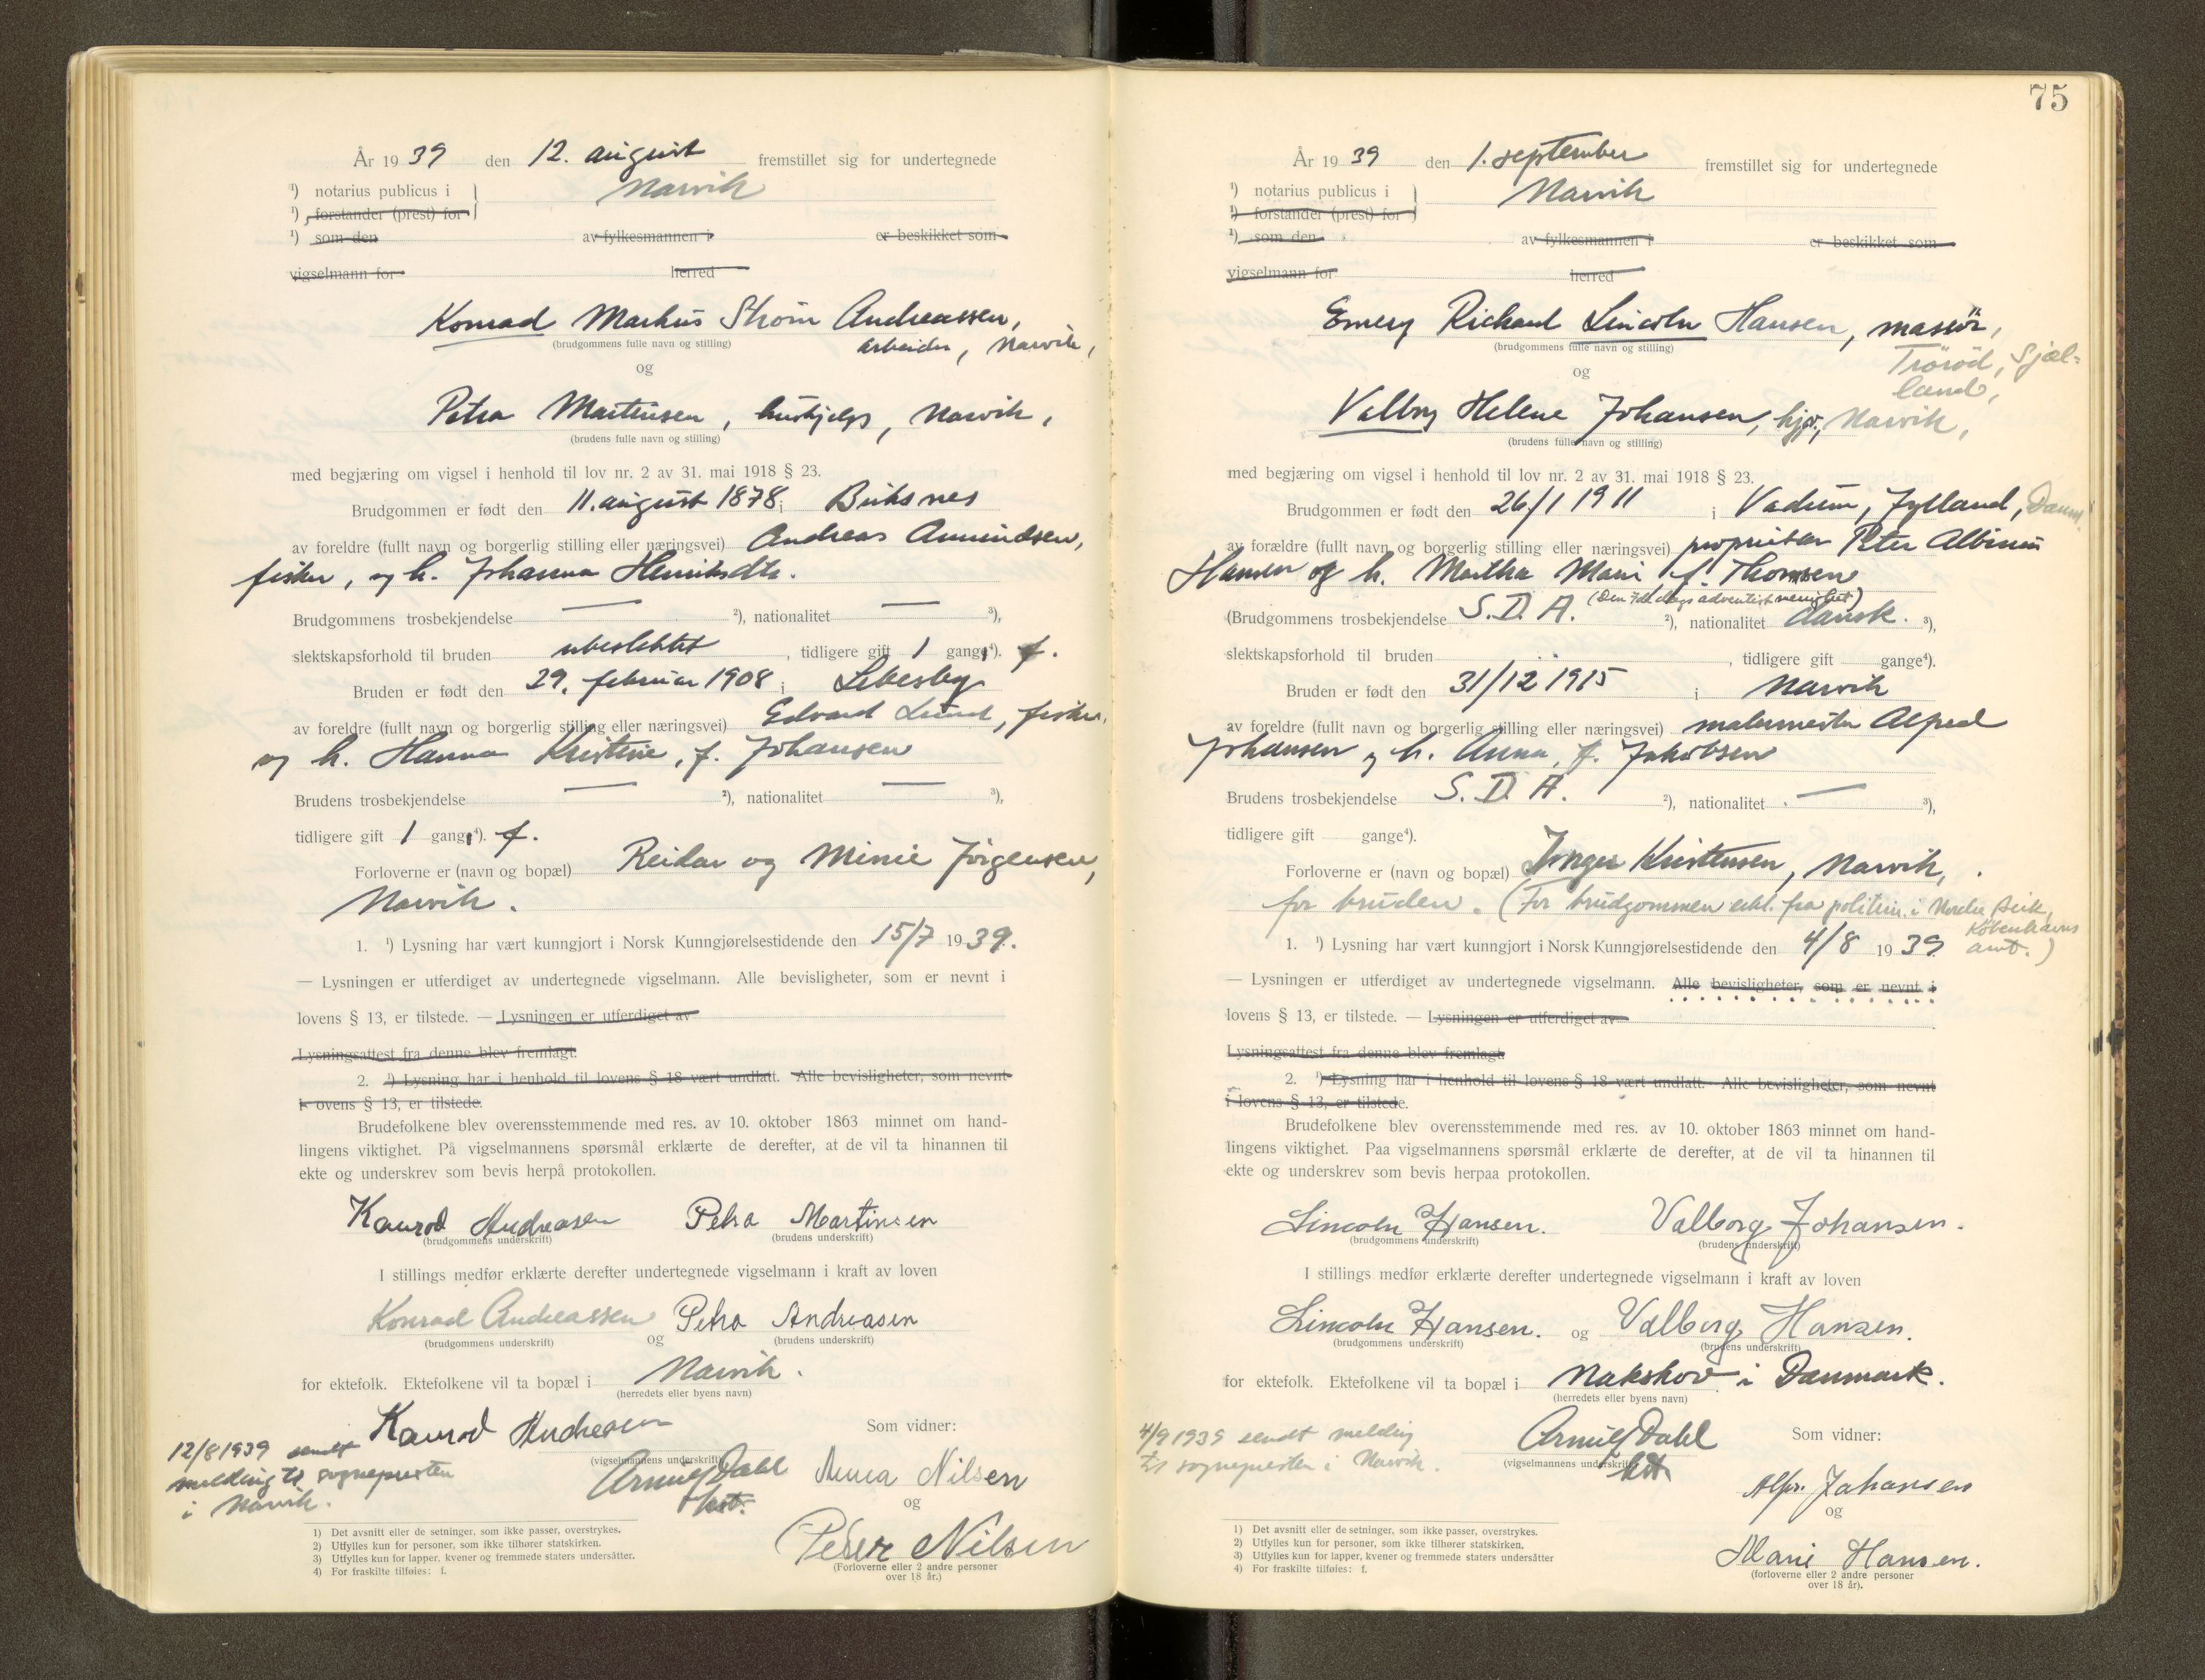 År 19 39 den 12. august fremstillet sig for undertegnede
¹) notarius publicus i Narvik
¹) forstander (prest) for
¹) som den av fylkesmannen i er beskikket som
vigselmann for herred
Konrad Markus Strøm Andreassen,
(brudgommens fulle navn og stilling) arbeider, Narvik,
og
Petra Martinsen, hushjelp, Narvik,
(brudens fulle navn og stilling)
med begjæring om vigsel i henhold til lov nr. 2 av 31. mai 1918 § 23.
Brudgommen er født den 11. august 1878 i Buksnes
av foreldre (fullt navn og borgerlig stilling eller næringsvei) Andreas Amundsen,
fisker, og h. Johanna Henriksdtr.
Brudgommens trosbekjendelse — ²), nationalitet — ³),
slektskapsforhold til bruden ubeslektet, tidligere gift 1 gang⁴). f.
Bruden er født den 29. februar 1908 i Lebesby
av foreldre (fullt navn og borgerlig stilling eller næringsvei) Edvard Lund, fisker,
og h. Hanna Kristine, f. Johansen
Brudens trosbekjendelse — ²), nationalitet — ³),
tidligere gift 1 gang⁴). f.
Forloverne er (navn og bopæl) Reidar og Minie Jörgensen,
Narvik.
1. ¹) Lysning har vært kunngjort i Norsk Kunngjørelsestidende den 15/7 1939.
— Lysningen er utferdiget av undertegnede vigselmann. Alle bevisligheter, som er nevnt i
lovens § 13, er tilstede. — Lysningen er utferdiget av
Lysningsattest fra denne blev fremlagt.
2. ¹) Lysning har i henhold til lovens § 18 vært undlatt. Alle bevisligheter, som nevnt
i ovens § 13, er tilstede.
Brudefolkene blev overensstemmende med res. av 10. oktober 1863 minnet om hand-
lingens viktighet. På vigselmannens spørsmål erklærte de derefter, at de vil ta hinannen til
ekte og underskrev som bevis herpå protokollen.
Konrad Andreasen Petra Martinsen
(brudgommens underskrift) (brudens underskrift)
I stillings medfør erklærte derefter undertegnede vigselmann i kraft av loven
Konrad Andreassen og Petra Andreasen
(brudgommens underskrift) (brudens underskrift)
for ektefolk. Ektefolkene vil ta bopæl i Narvik.
(herredets eller byens navn)
Konrad Andreasen Som vidner:
12/8 1939 sendt
melding til sognepresten
i Narvik.
(vigselmannens underskrift)
Arnulf Dahl
kst.
Anna Nilsen
og
Peder Nilsen
(Forloverne eller 2 andre personer
over 18 år.)
1) Det avsnitt eller de setninger, som ikke passer, overstrykes.
2) Utfylles kun for personer, som ikke tilhører statskirken.
3) Utfylles kun for lapper, kvener og fremmede staters undersåtter.
4) For fraskilte tilføies: f.
75
År 19 39 den 1. september fremstillet sig for undertegnede
¹) notarius publicus i Narvik
¹) forstander (prest) for
¹) som den av fylkesmannen i er beskikket som
vigselmann for herred
Emery Richard Lincoln Hansen, massör,
(brudgommens fulle navn og stilling) Trörød, Sjæl-
land,
og
Valborg Helene Johansen, Narvik,
(brudens fulle navn og stilling)
med begjæring om vigsel i henhold til lov nr. 2 av 31. mai 1918 § 23.
Brudgommen er født den 26/1 1911 i Vadum, Jylland, Danm.
av forældre (fullt navn og borgerlig stilling eller næringsvei) proprietær Peter Albinus
Hansen og h. Martha Marie, f. Thomsen
(Den 7de dags adventistmenighet)
(Brudgommens trosbekjendelse S.D.A. ²), nationalitet dansk. ³),
slektskapsforhold til bruden , tidligere gift gange⁴).
Bruden er født den 31/12 1915 i Narvik
av foreldre (fullt navn og borgerlig stilling eller næringsvei) malermester Alfred
Johansen og h. Anna, f. Jakobsen
Brudens trosbekjendelse S.D.A. ²), nationalitet — ³),
tidligere gift gange⁴).
Forloverne er (navn og bopæl) Inger Kristensen, Narvik,
for bruden. (For brudgommen erkl. fra politiet i Nordre Birk,
Københavns
amt.)
1. ¹) Lysning har vært kunngjort i Norsk Kunngjørelsestidende den 4/8 1939
— Lysningen er utferdiget av undertegnede vigselmann. Alle bevisligheter, som er nevnt i
lovens § 13, er tilstede. — Lysningen er utferdiget av
Lysningsattest fra denne blev fremlagt.
2. ¹) Lysning har i henhold til lovens § 18 vært undlatt. Alle bevisligheter, som nevnt
i lovens § 13, er tilstede.
Brudefolkene blev overensstemmende med res. av 10. oktober 1863 minnet om hand-
lingens viktighet. Paa vigselmannens spørsmål erklærte de derefter, at de vil ta hinannen til
ekte og underskrev som bevis herpaa protokollen.
Lincoln Hansen. Valborg Johansen.
(brudgommens underskrift) (brudens underskrift)
I stillings medfør erklærte derefter undertegnede vigselmann i kraft av loven
Lincoln Hansen. og Valborg Hansen.
(brudgommens underskrift) (brudens underskrift)
for ektefolk. Ektefolkene vil ta bopæl i Nakskov i Danmark.
(herredets eller byens navn)
4/9 1939 sendt melding
til sognepresten i Narvik.
Arnulf Dahl
(vigselmannens underskrift)
kst.
Som vidner:
Alfr. Johansen
og
Marie Hansen.
(forloverne eller 2 andre personer
over 18 år).
1) Det avsnitt eller de setninger, som ikke passer, overstrykes.
2) Utfylles kun for personer, som ikke tilhører statskirken.
3) Utfylles kun for lapper, kvener og fremmede staters undersåtter
4) For fraskilte tilføies: f.